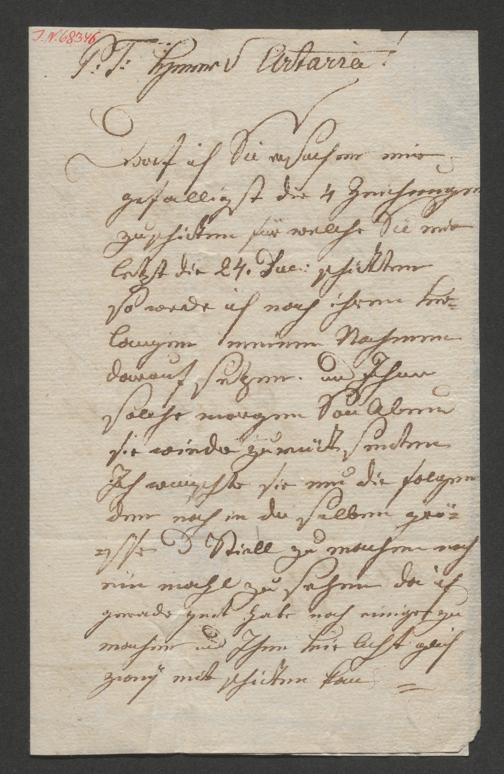 J.N. 68346
P: T: Herrn v Artaria!
Darf ich Sie ersuchen mir
gefälligst die 4 Zeichnungen
zuschicken für welche Sie mir
letzt die 24. Duc: schickten
so werde ich nach ihrem Ver=
langen meinen Nahmen
darauf setzen. und Ihnen
solche morgen Son Abend
sie wieder zurück senden
Ich wünschte sie um die folgen
den noch in der selben grö=
sse Stiell zu machen noch
ein mahl zu sehen da ich
gerade zeit habe noch einige zu
machen und Ihnen
mit schicken kan